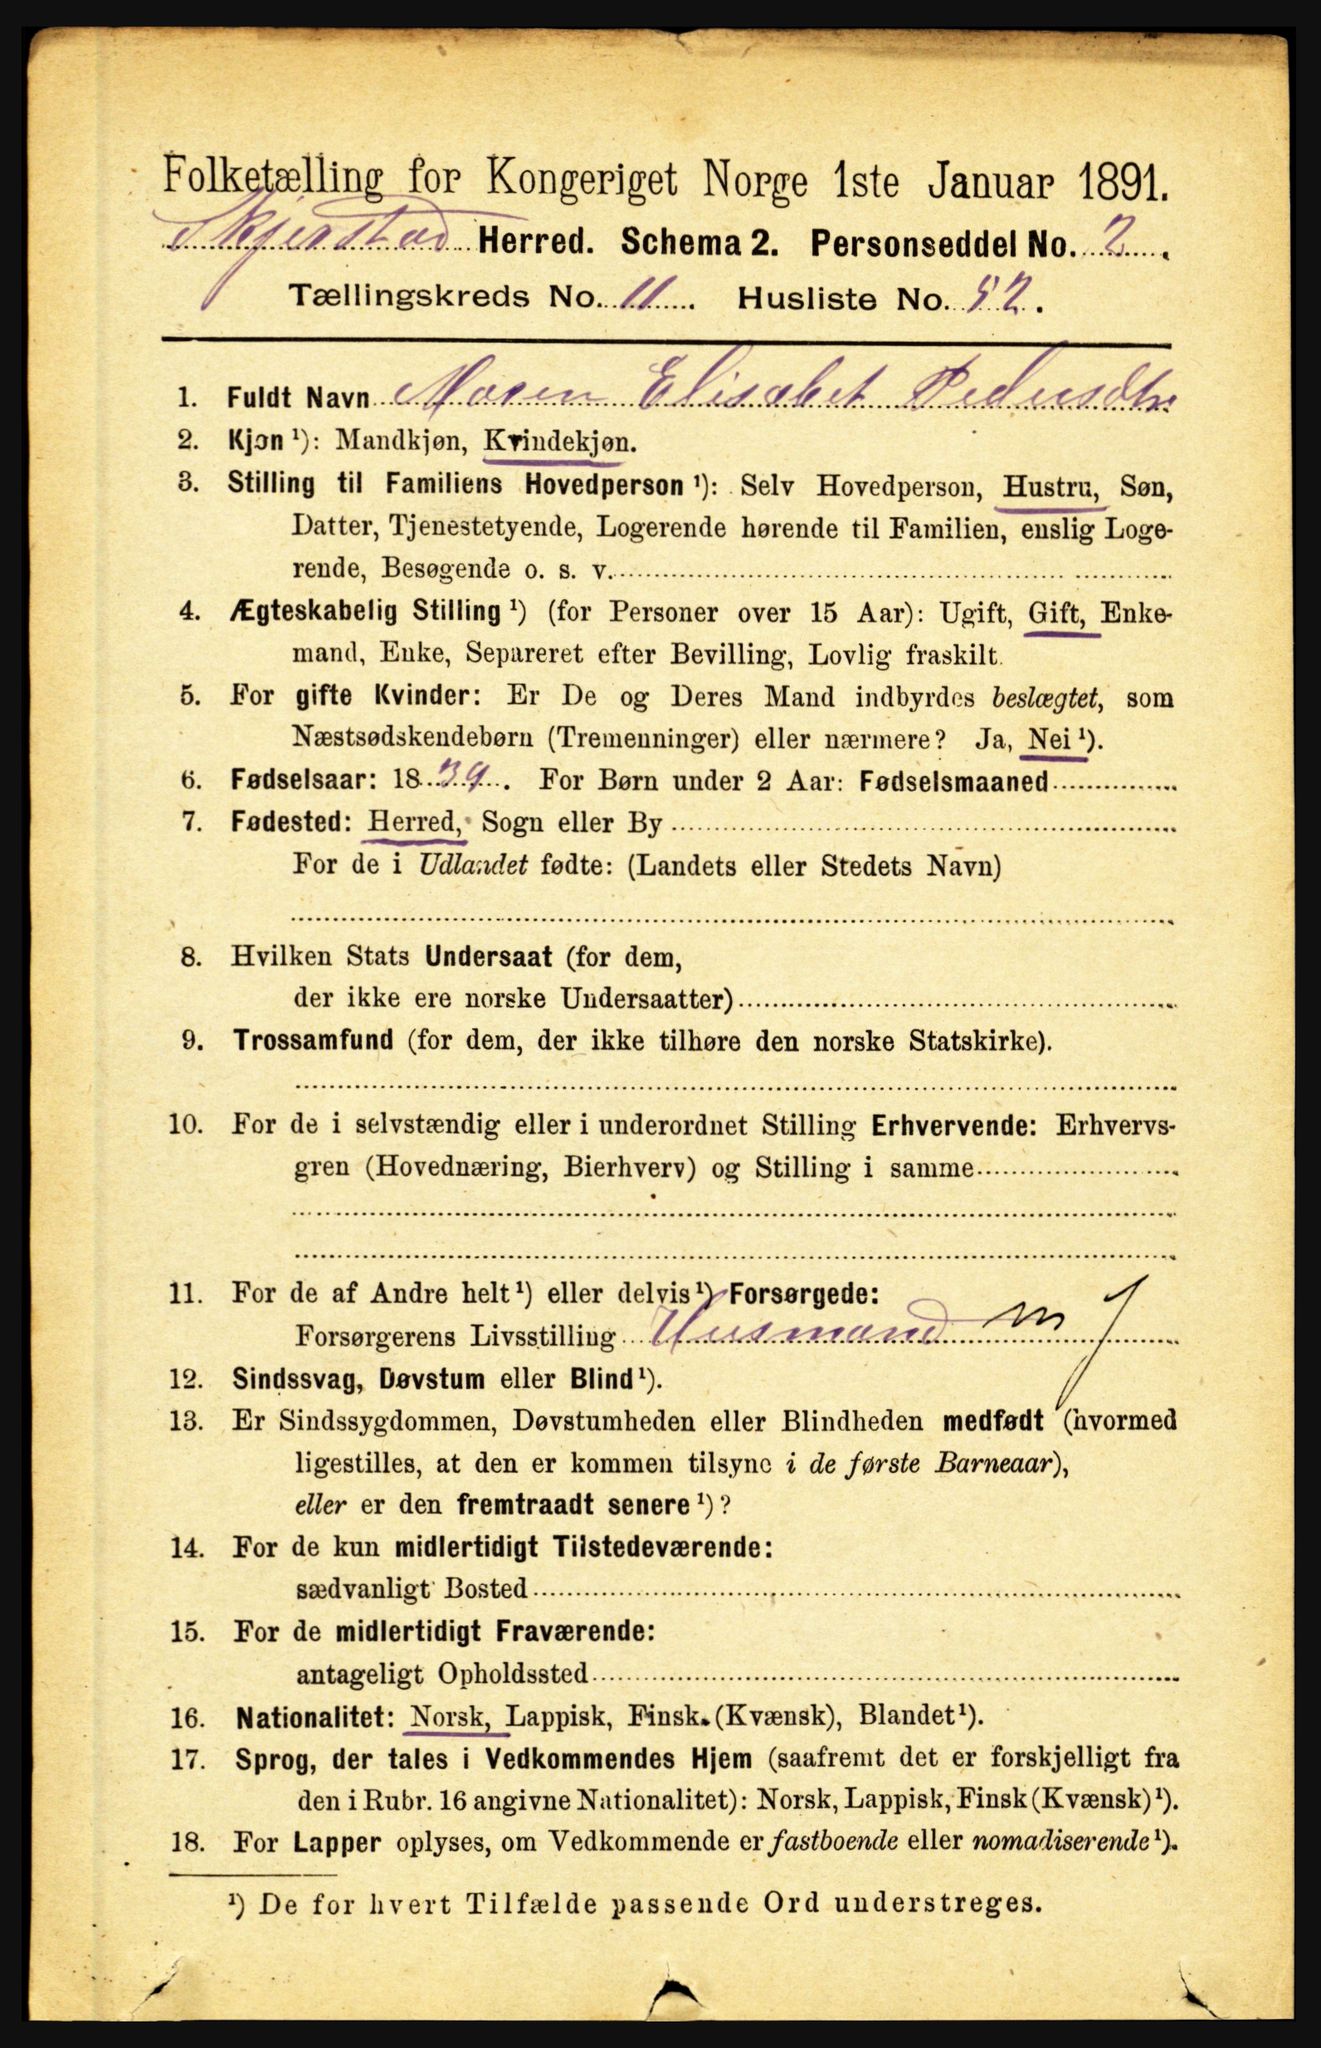 Folketælling for Kongeriget Norge 1ste Januar 1891.
Skjerstad Herred. Schema 2. Personseddel No. 2.
Tællingskreds No. 11. Husliste No. 52.
1. Fuldt Navn Maren Elisabet Pedersdtr
2. Kjøn¹): Mandkjøn, Kvindekjøn.
3. Stilling til Familiens Hovedperson¹): Selv Hovedperson, Hustru, Søn,
Datter, Tjenestetyende, Logerende hørende til Familien, enslig Loge-
rende, Besøgende o. s. v.
4. Ægteskabelig Stilling¹) (for Personer over 15 Aar): Ugift, Gift, Enke-
mand, Enke, Separeret efter Bevilling, Lovlig fraskilt.
5. For gifte Kvinder: Er De og Deres Mand indbyrdes beslægtet, som
Næstsødskendebørn (Tremenninger) eller nærmere? Ja, Nei¹).
6. Fødselsaar: 1839. For Børn under 2 Aar: Fødselsmaaned
7. Fødested: Herred, Sogn eller By
For de i Udlandet fødte: (Landets eller Stedets Navn)
8. Hvilken Stats Undersaat (for dem,
der ikke ere norske Undersaatter)
9. Trossamfund (for dem, der ikke tilhøre den norske Statskirke).
10. For de i selvstændig eller i underordnet Stilling Erhvervende: Erhvervs-
gren (Hovednæring, Bierhverv) og Stilling i samme
11. For de af Andre helt¹) eller delvis¹) Forsørgede:
Forsørgerens Livsstilling Husmand m J
12. Sindssvag, Døvstum eller Blind¹).
13. Er Sindssygdommen, Døvstumheden eller Blindheden medfødt (hvormed
ligestilles, at den er kommen tilsyne i de første Barneaar),
eller er den fremtraadt senere¹)?
14. For de kun midlertidigt Tilstedeværende:
sædvanligt Bosted
15. For de midlertidigt Fraværende:
antageligt Opholdssted
16. Nationalitet: Norsk, Lappisk, Finsk (Kvænsk), Blandet¹).
17. Sprog, der tales i Vedkommendes Hjem (saafremt det er forskjelligt fra
den i Rubr. 16 angivne Nationalitet): Norsk, Lappisk, Finsk (Kvænsk)¹).
18. For Lapper oplyses, om Vedkommende er fastboende eller nomadiserende¹).
¹) De for hvert Tilfælde passende Ord understreges.